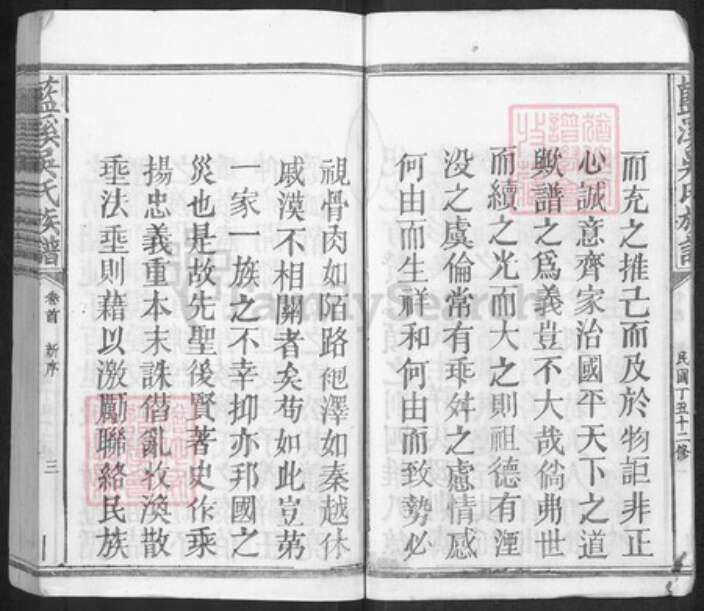 而充之推己而及於物詎非正
心誠意齊家治國平天下之道
歟譜之爲義豈不大哉倘弗世
而續之光而大之則祖德有湮
没之虞倫常有乖舛之慮情感
何由而生祥和何由而致勢必
民國丁丑十二修
視骨肉如陌路袍澤如秦越休
戚漠不相關者矣苟如此豈第
一家一族之不幸抑亦邦國之
災也是故先聖後賢著史作乘
揚忠義重本末誅僭亂收渙散
垂法垂則藉以激勵聯絡民族
藍溪吴氏族譜
卷首 新序
三
FamilySearch